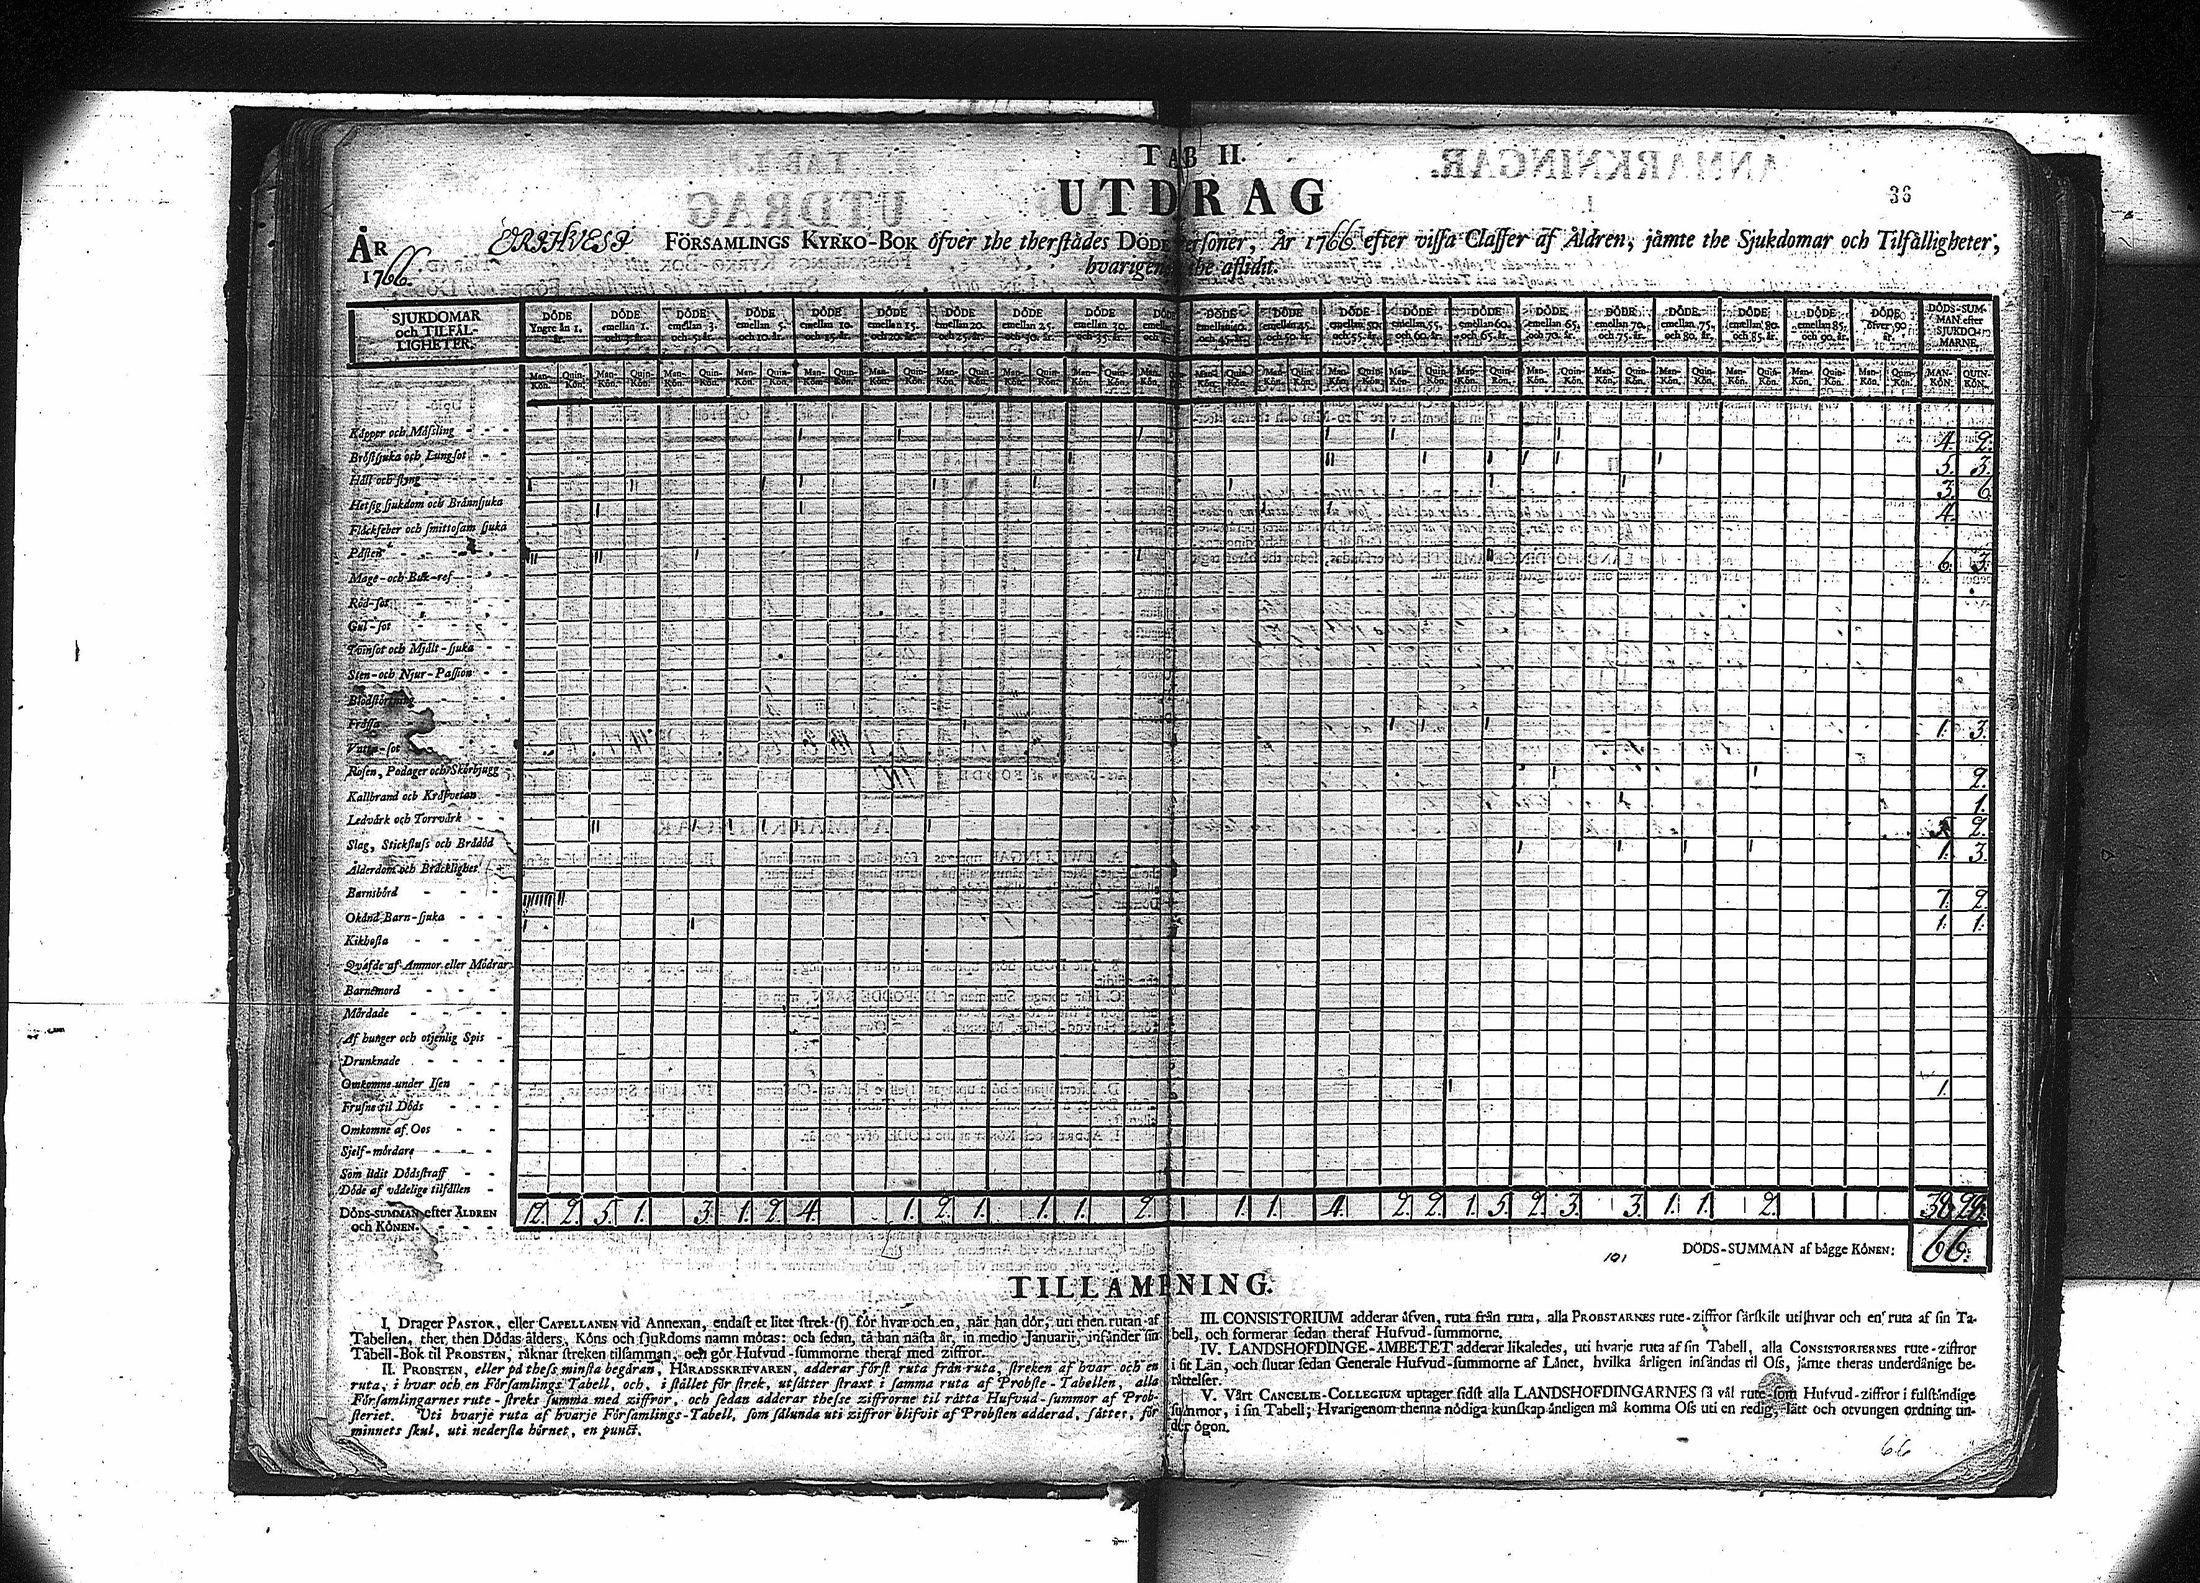 TAB II.
UTDRAG
36
ÅR
1766.
FÖRSAMLINGS KYRKO-BOK öfver the therstådes DÖDE Personer, År 1766. efter vissa Classer af Åldren, jämte the Sjukdomar och Tilfälligheter,
hvarigenom the aflidit.
SJUKDOMAR och TILFÄLLIGHETER.
DÖDE Yngre än 1. år.
DÖDE emellan 1. och 3. år.
DÖDE emellan 3. och 5. år.
DÖDE emellan 5. och 10. år.
DÖDE emellan 10. och 15. år.
DÖDE emellan 15. och 20. år.
DÖDE emellan 20. och 25. år.
DÖDE emellan 25. och 30. år.
DÖDE emellan 30. och 35. år.
DÖDE emellan 40. och 45. år.
DÖDE emellan 45. och 50. år.
DÖDE emellan 50. och 55. år.
DÖDE emellan 55. och 60. år.
DÖDE emellan 60. och 65. år.
DÖDE emellan 65. och 70. år.
DÖDE emellan 70. och 75. år.
DÖDE emellan 75. och 80. år.
DÖDE emellan 80. och 85. år.
DÖDE emellan 85. och 90. år.
DÖDE öfver 90 år.
DÖDS-SUMMAN efter SJUKDOMARNE.
MAN-KÖN. QUIN-KÖN.
Koppor och Mässling 4. 2.
Bröstsjuka och Lungsot 5. 3.
Håll och styng 3. 6.
Hetsig sjukdom och Brännsjuka 4.
Fläckfeber och smittosam sjuka
Pästen 6. 3.
Mage- och Buk-ref
Röd-sot
Gul-sot
Tvinsot och Mjält-sjuka
Sten- och Njur-Passion
Blodstörtning
Frossa 1. 3.
Vattu-sot
Rosen, Podager och Skörbjugg 2.
Kallbrand och Kräfvetan 1.
Ledvärk och Torrvärk 2.
Slag, Stickfluss och Brådöd 1. 3.
Ålderdom och Bräcklighet
Barnsbörd 7. 2.
Okänd Barn-sjuka 1. 1.
Kikhosta
Qväfde af Ammor eller Mödrar
Barnemord
Mördade
Af hunger och otjenlig Spis
Drunknade
Omkomne under Isen 1.
Frusne til Döds
Omkomne af Oos
Sjelf-mördare
Som lidit Dödsstraff
Döde af vådelige tilfällen
DÖDS-SUMMAN efter ÅLDREN och KÖNEN. 12. 2. 5. 1. 3. 1. 2. 4. 1. 2. 1. 1. 1. 2. 1. 1. 4. 2. 2. 1. 5. 2. 3. 3. 1. 1. 2. 38.
DÖDS-SUMMAN af bägge KÖNEN: 66.
101
TILLÄMPNING.
I. Drager PASTOR, eller CAPELLANEN vid Annexan, endast et litet strek (1) för hvar och en, när han dör, uti then rutan af
Tabellen, ther then Dödas ålders, Köns och sjukdoms namn mötas: och sedan, tå han nästa år, in medio Januarii, insänder sin
Tabell-Bok til PROBSTEN, räknar streken tilsamman, och gör Hufvud-summorne theraf med ziffror.
II. PROBSTEN, eller på thess minsta begäran, HÄRADSSKRIFVAREN, adderar först ruta från ruta, streken af hvar och en
ruta, i hvar och en Församlings Tabell, och, i stället för strek, utsätter straxt i samma ruta af Probste-Tabellen, alla
Församlingarnes rute-streks summa med ziffror, och sedan adderar thesse ziffrorne til rätta Hufvud-summor af Prob-
steriet. Uti hvarje ruta af hvarje Församlings-Tabell, som sålunda uti ziffror blifvit af Probsten adderad, sätter, för
minnets skul, uti nedersta hörnet, en punct.
III. CONSISTORIUM adderar äfven, ruta från ruta, alla PROBSTARNES rute-ziffror särskilt uti hvar och en ruta af sin Ta-
bell, och formerar sedan theraf Hufvud-summorne.
IV. LANDSHÖFDINGE-ÄMBETET adderar likaledes, uti hvarje ruta af sin Tabell, alla CONSISTORIERNES rute-ziffror
i sit Län, och slutar sedan Generale Hufvud-summorne af Länet, hvilka årligen insändas til Oss, jämte theras underdånige be-
rättelser.
V. Vårt CANCELIE-COLLEGIUM uptager sidst alla LANDSHÖFDINGARNES så väl rute-som Hufvud-ziffror i fulständige
summor, i sin Tabell; Hvarigenom thenna nödiga kunskap äntligen må komma Oss uti en redig, lätt och otvungen ordning un-
der ögon.
66